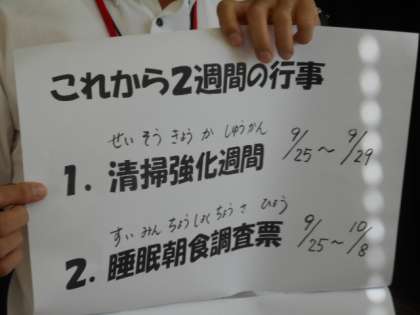 これから2週間の行事
せいそうきょうかしゅうかん
1. 清掃強化週間 9/25～9/29
すいみんちょうしょくちょうさひょう
2. 睡眠朝食調査票 9/25～10/8